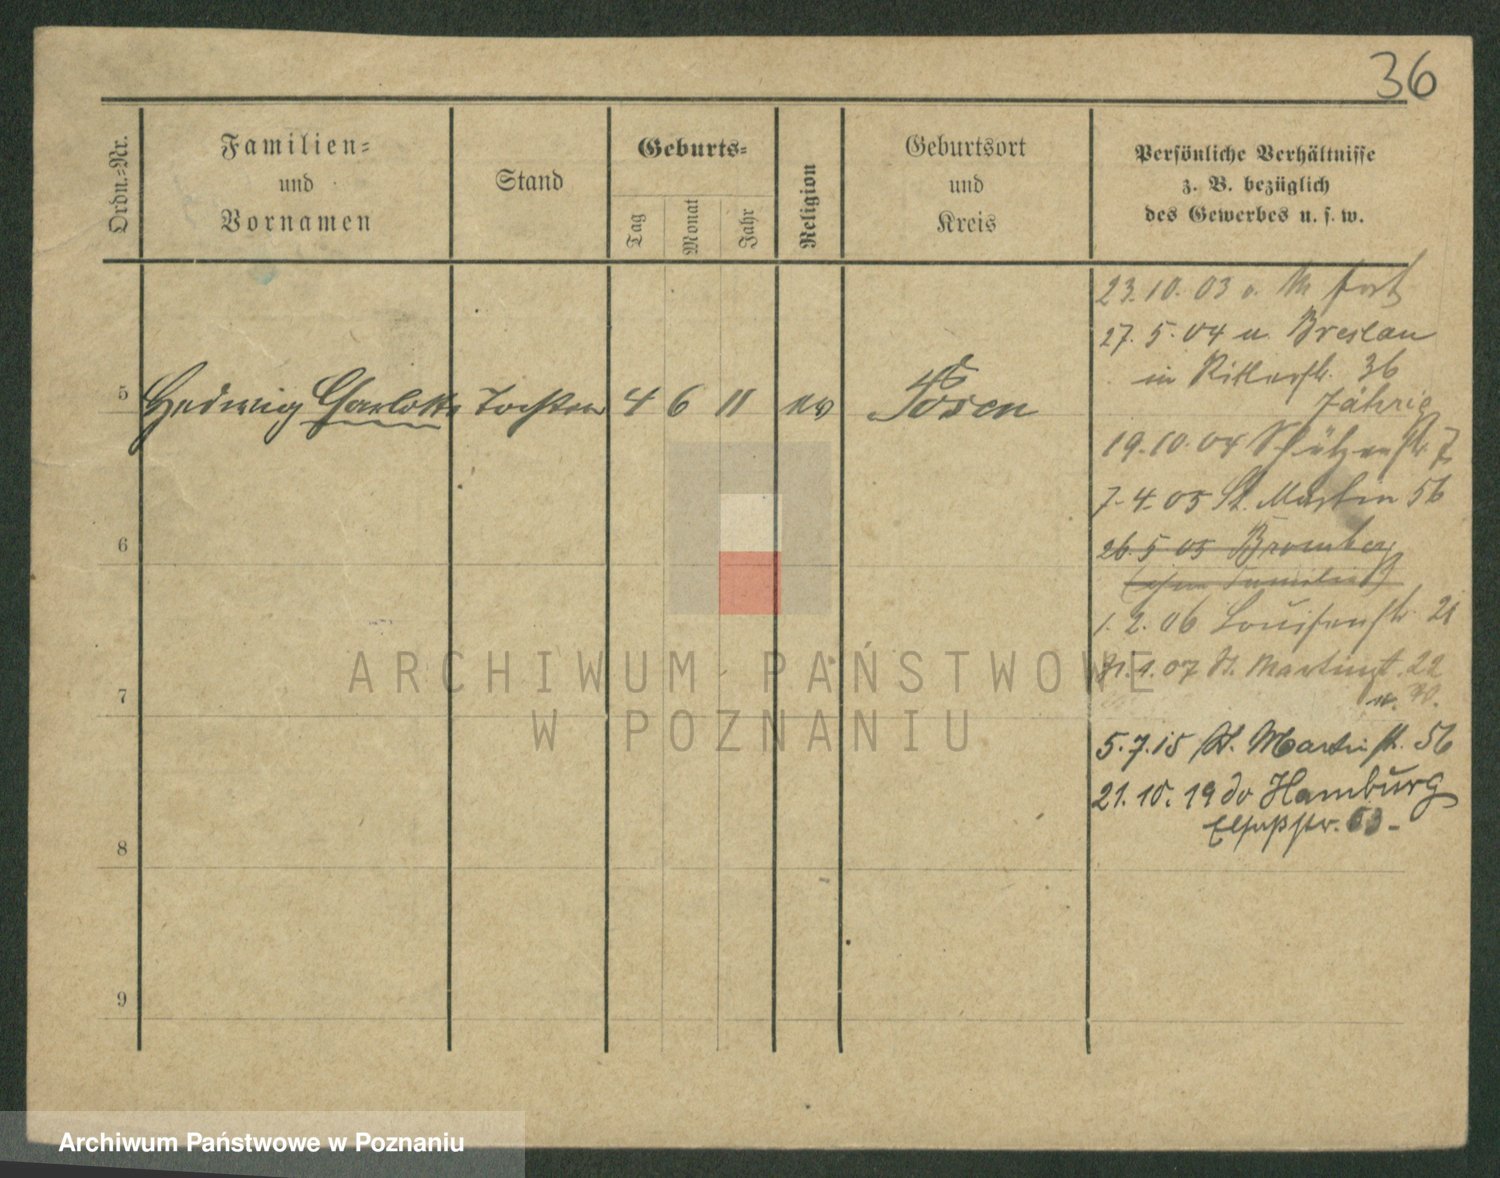 36
Ordn.-Nr.
Familien-
und
Vornamen
Stand
Geburts-
Tag
Monat
Jahr
Religion
Geburtsort
und
Kreis
Persönliche Verhältnisse
z. B. bezüglich
des Gewerbes u. s. w.
23. 10. 03 v.
27. 5. 04 u. Breslau
in Ritterstr. 36
Jährig
19. 10. 04 Schützenstr. 7
7. 4. 05 St. Martin 56
26. 5 05 Bromberg
1. 2. 06 Louisenstr. 21
4. 07 St. Martinst. 22
5. 7. 15 St. Martinstr. 56
21. 10. 19 do Hamburg
Elsaßstr.
5 Hedwig Charlotte Tochter 4 6 11 ev Posen
6
7
8
9
ARCHIWUM PAŃSTWOWE
W POZNANIU
Archiwum Państwowe w Poznaniu